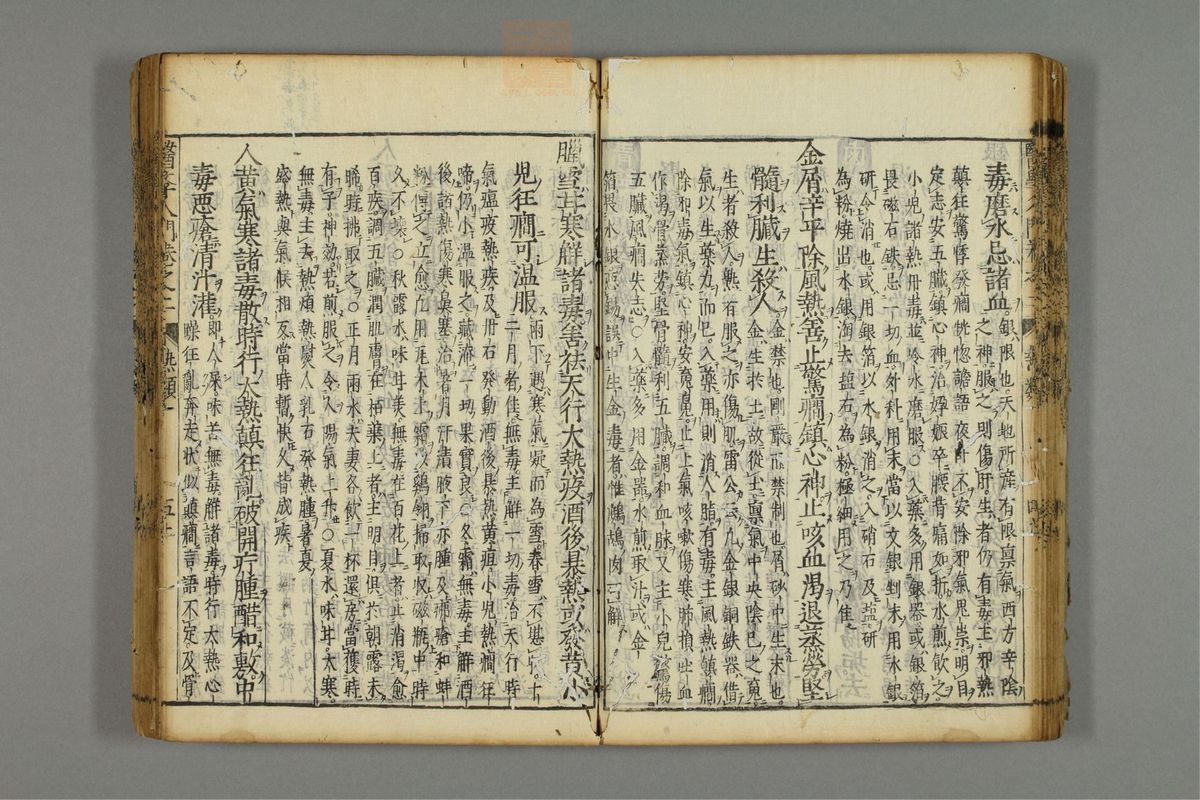 毒磨水忌諸血銀限也天地所産有限禀氣西方辛陰
之神服之則傷肝生者仍有毒主邪熱
癲狂驚悸發癎恍惚譫語夜卧不安除邪氣鬼祟明目
定志安五臟鎮心神治妊娠卒腰背痛如折水煎飲之
小兒諸熱丹毒並冷水磨服○入藥多用銀器或銀箔
畏磁石鉄忌一切血外科用末當以文銀剉末用水銀
研令消也或用銀箔以水銀消之入硝石及盐研
為粉燒出水銀淘去盐石為粉極細用之乃佳
金屑辛平除風熱善止驚癎鎮心神止咳血渴退蒸勞堅
髓利臟生殺人金禁也剛嚴而禁制也屑砂中生末也
骨金生於土故從土禀氣中央陰巳之䰟
生者殺人熟有服之亦傷肌雷公云凡金銀銅鉄器借
氣以生藥力而巳入藥用則消人脂有毒主風熱鎮癎
除邪毒氣鎮心神安䰟魄止上氣咳嗽傷寒肺損吐血
作渴骨蒸勞堅骨髓利五臟調和血脉又主小兒驚傷
五臟風癎失志○入藥多用金器水煎取汁或金
箔畏水銀忌錫誤中生金毒者惟鷓鴣肉可解
臘雪甘寒觧諸毒善祛天行大熱疫酒後暴熱或發黄小
兒狂癎可温服雨下遇寒氣凝而為雪春雪不堪
二月者佳無毒主解一切毒治天行時
氣瘟疫熱疾及丹石發動酒後暴熱黄疸小兒熱癎狂
啼仍小温服之藏淹一切果實良○冬霜無毒主觧酒
後諸熱傷寒鼻塞治暑月汗漬腋下赤腫及痱瘡和蚌
粉傅之立愈凡用瓦木上霜以鷄翎掃取收磁瓶中時
久不壊○秋露水味甘美無毒在百花上者止消渴愈
百疾調五臟潤肌膚在栢葉上者主明目俱於朝露未
晞時拂取之○正月雨水夫妻各飲一杯還房當獲時
有子神効若煎服之令人陽氣上升○夏氷味甘大寒
無毒主去熱煩熱熨人乳石發熱腫暑夏
盛熱與氣候相反當時暫快久皆成疾
人黄氣寒諸毒散時行大熱鎮狂亂破開疔腫醋和敷中
毒惡瘡清汁灌即人屎味苦無毒觧諸毒時行大熱心
躁狂亂奔走狀似癲癎言語不定及骨
醫學入門卷之二
熱類
五十